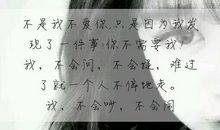 不是我不爱你,只是因为我发
现了一件事:你不需要我!
我,不会问,不会提,难过
了就一个人不停地走。
我,不会吵,不会闹